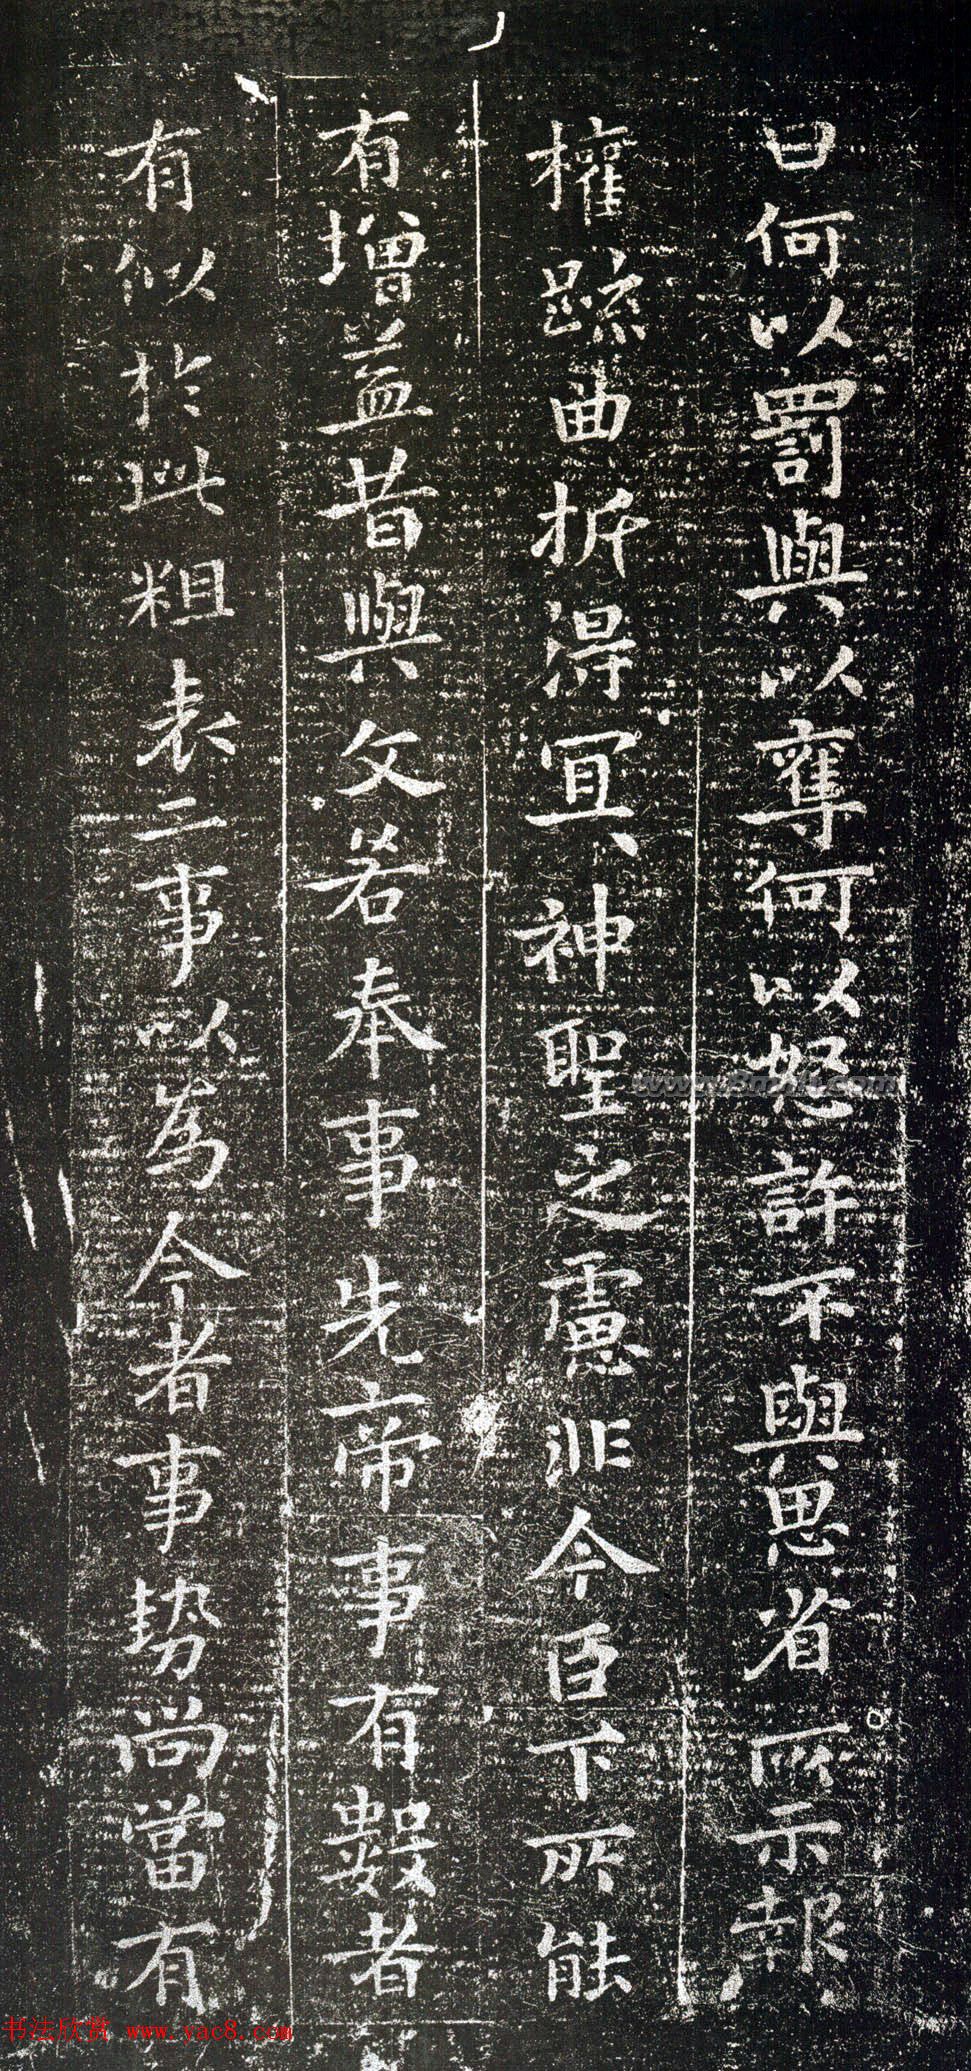 曰何以罰與以奪何以怒許不與思省所示報
權疏曲折得宜神聖之慮非今臣下所能
有增益昔與文若奉事先帝事有數者
有似於此粗表二事以為今者事勢尚當有
www.8mhh.com
书法欣赏 www.yac8.com